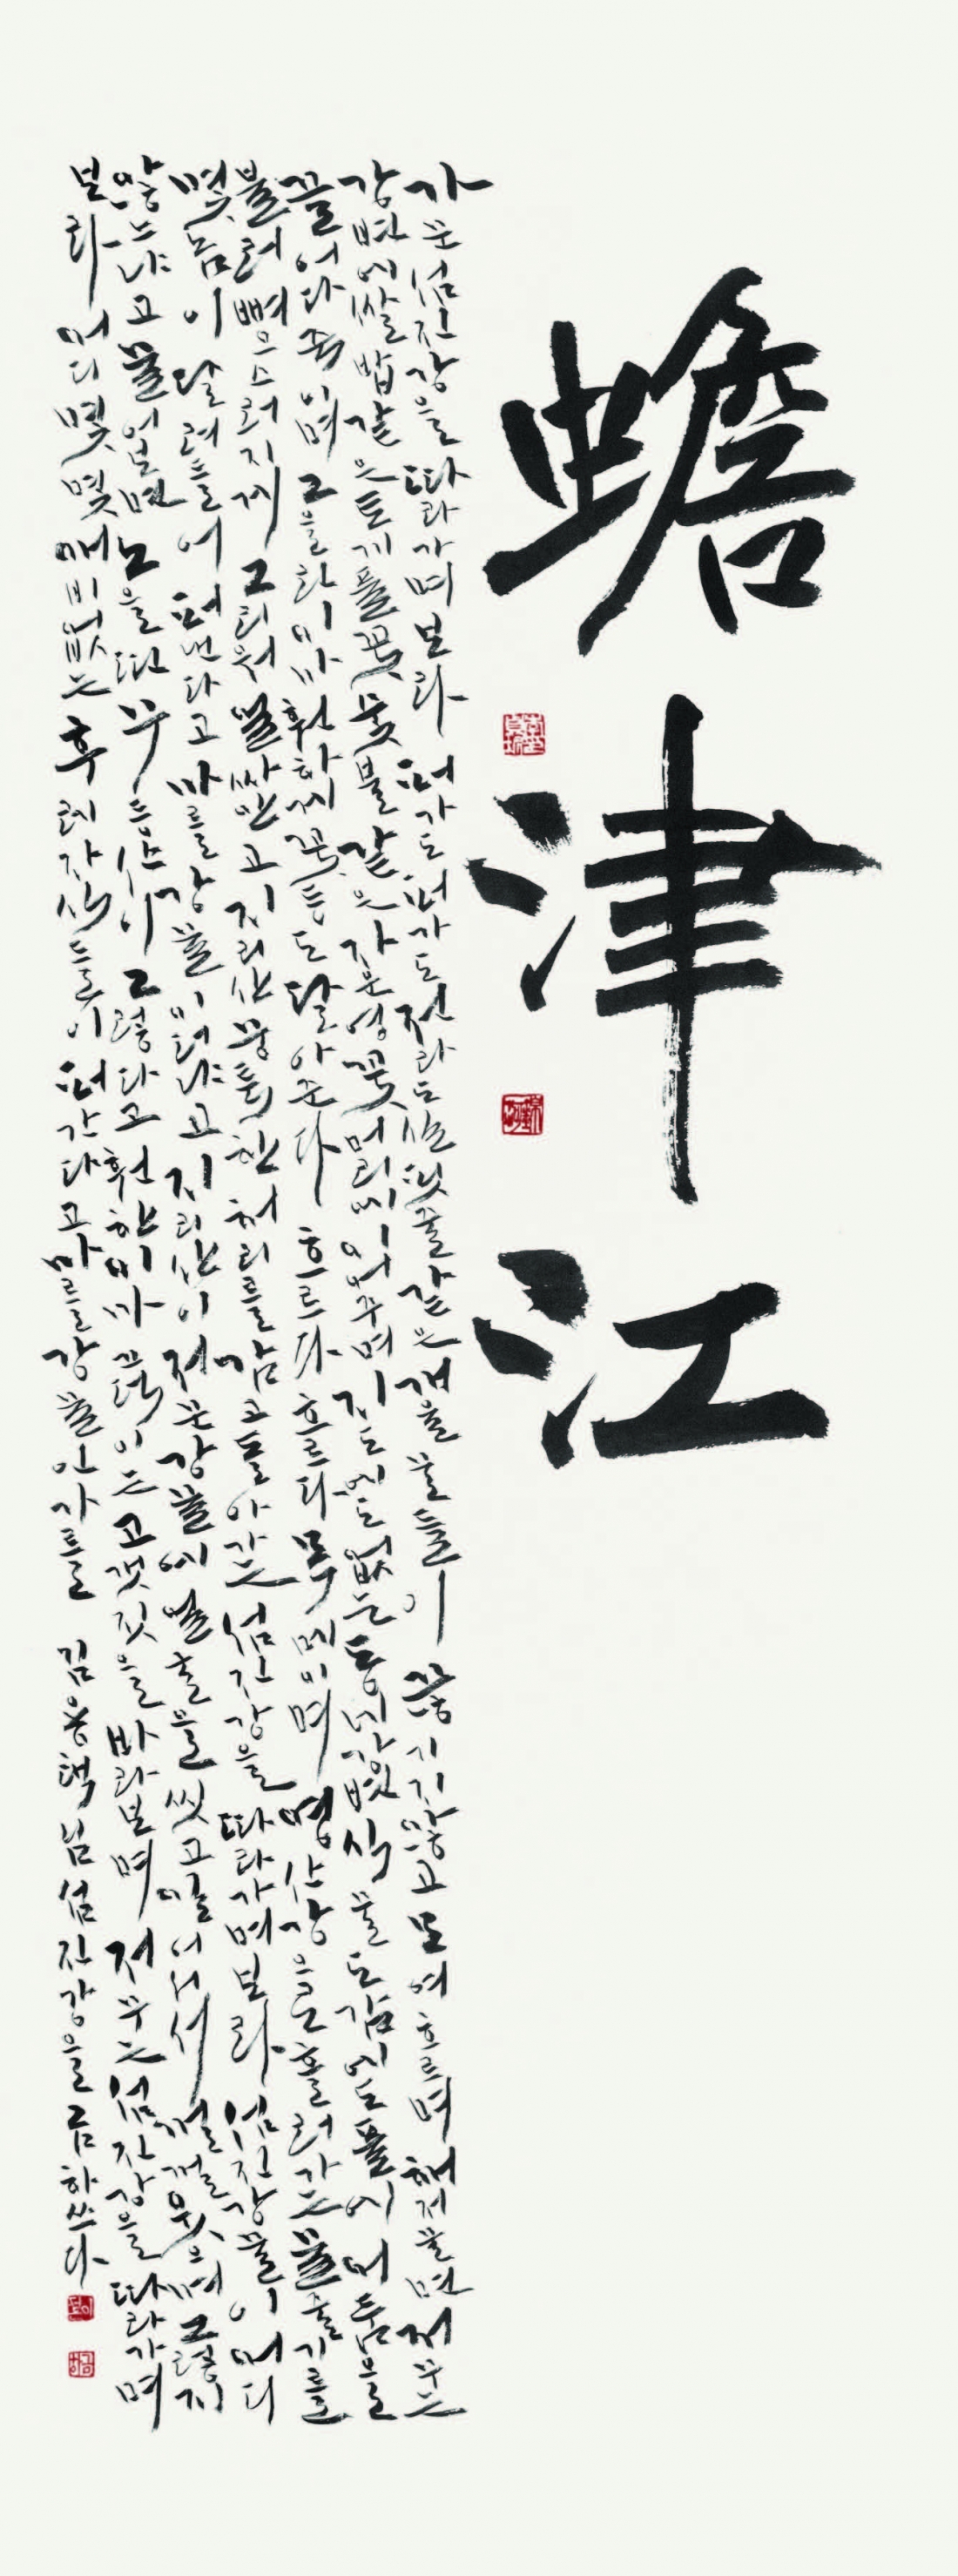 蟾津江
가문 섬진강을 따라가며 보라 퍼가도 퍼가도 전라도 실핏줄 같은 개울물들이 끊기지 않고 모여 흐르며 해 저물면 저무는
강변에 쌀밥 같은 토끼풀꽃 숯불 같은 자운영꽃 머리에 이어주며 지도에도 없는 동네 강변 식물도감에도 풀에 어둠을
끌어다 죽이며 그을린 이마 훤하게 꽃등도 달아준다 흐르다 흐르다 목메이며 영산강으로 흘러가는 물줄기를
불러 뼈 으스러지게 그리워 얼싸안고 지리산 뭉툭한 허리를 감고 돌아가는 섬진강을 따라가며 보라 섬진강물이 어디
몇 놈이 달려들어 퍼낸다고 마를 강물이더냐고 지리산이 저문 강물에 얼굴을 씻고 일어서서 껄껄 웃으며 그렇지
않느냐고 물어보면 노을 띤 무등산이 그렇다고 훤한 이마 끄덕이는 고갯짓을 바라보며 저무는 섬진강을 따라가며
보라 어디 몇몇 애비 없는 후레자식들이 퍼간다고 마를 강물인가를 김용택님 섬진강을 금하쓰다